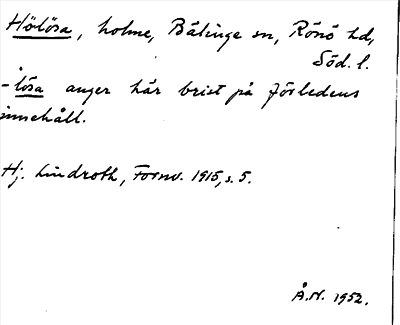 Hölösa, holme, Bälinge sn, Rönö hd,
Söd. l.
-lösa anger här brist på förledens
innehåll.
Hj. Lindroth, Fornv. 1915, s. 5.
Å.N. 1952.